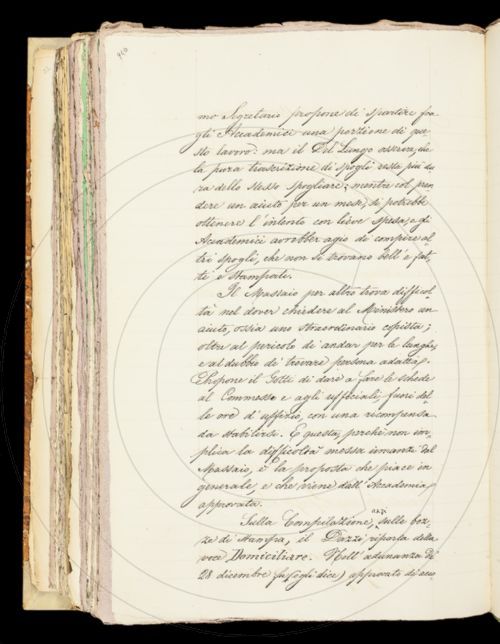 mo Segretario propone di spartire fra
gli Accademici una porzione di que-
sto lavoro: ma il Del Lungo osserva, che
la pura trascrizione di spogli resta più du-
ra dello stesso spogliare; mentre col pren
dere un aiuto per un mese, si potrebbe
ottenere l'intento con lieve spesa, e gli
Accademici avrebber agio di compire al
tri spogli, che non si trovano bell'e fat-
ti e stampati.
Il Massaio per altro trova difficol-
tà nel dover chiedere al Ministero un
aiuto, ossia uno straordinario copista;
oltre al pericolo di andar per le lunghe,
e al dubbio di trovare persona adatta.
Propone il Gotti di dare a fare le schede
al Commesso e agli ufficiali, fuori del-
le ore d'uffizio, con una ricompensa
da stabilirsi. E questa, perchè non im-
plica la difficoltà messa innanzi dal
Massaio, è la proposta che piace in
generale, e che viene dall'Accademia
approvata.
Sulla Compilazione, anzi sulle boz-
ze di stampa, il Dazzi riparla della
voce Domiciliare. Nell'adunanza de'
28 dicembre fu (egli dice) approvato di